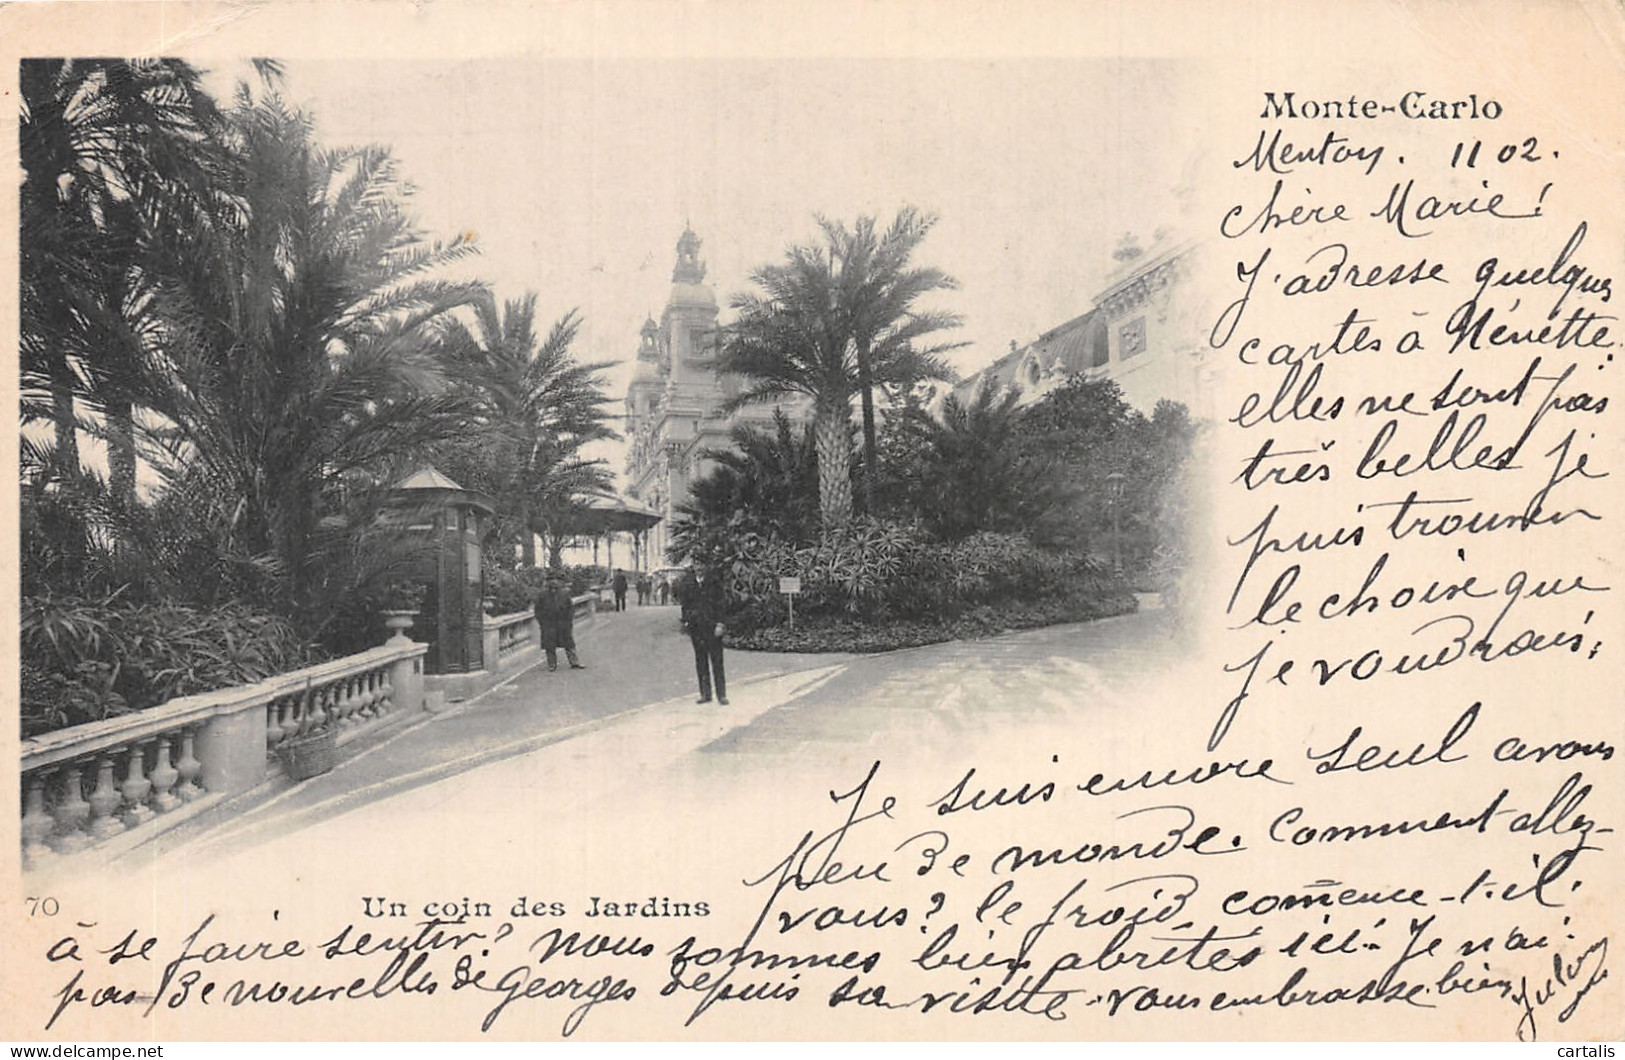 Monte-Carlo
Menton. 11 02.
chère Marie!
J'adresse quelques
cartes à Nénette.
elles ne sont pas
très belles je
puis trouver
le choix que
je voudrais,
Je suis encore seul avons
peu de monde. Comment allez-
vous? le froid commence-t-il
à se faire sentir? nous sommes bien abrités ici. Je n'ai
pas de nouvelles de Georges depuis sa visite. vous embrasse bien
70
Un coin des Jardins
cartalis